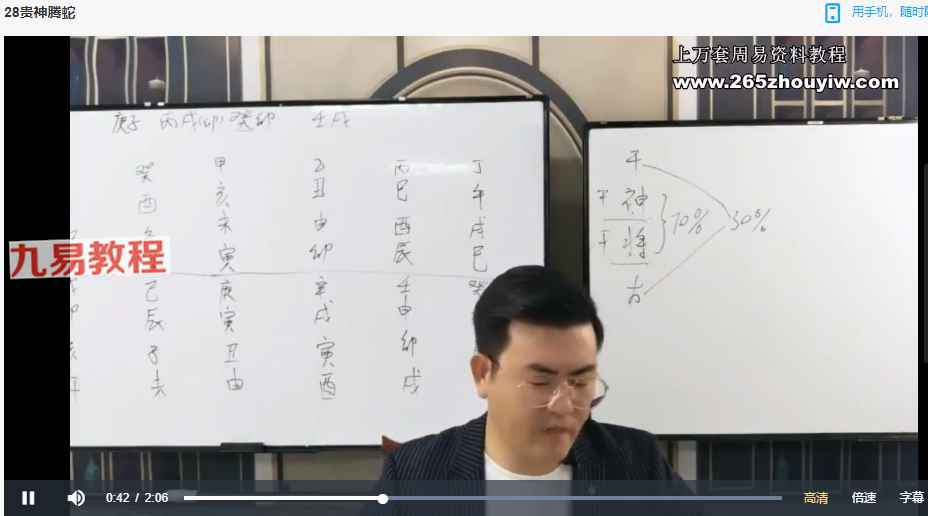 28贵神腾蛇
用手机，随时
上万套周易资料教程
www.265zhouyiw.com
庚子 丙戌(卯) 癸卯 壬戌
癸 甲 乙 丙 丁
酉 亥 丑 巳 午
未 申 酉 戌
寅 卯 辰 巳
九易教程
己 庚 辛 壬 癸
辰 寅 戌 申
子 丑 寅 卯
亥 申 酉 戌
干
干 神
干 将
70% 30%
0:42 / 2:06
高清 倍速 字幕